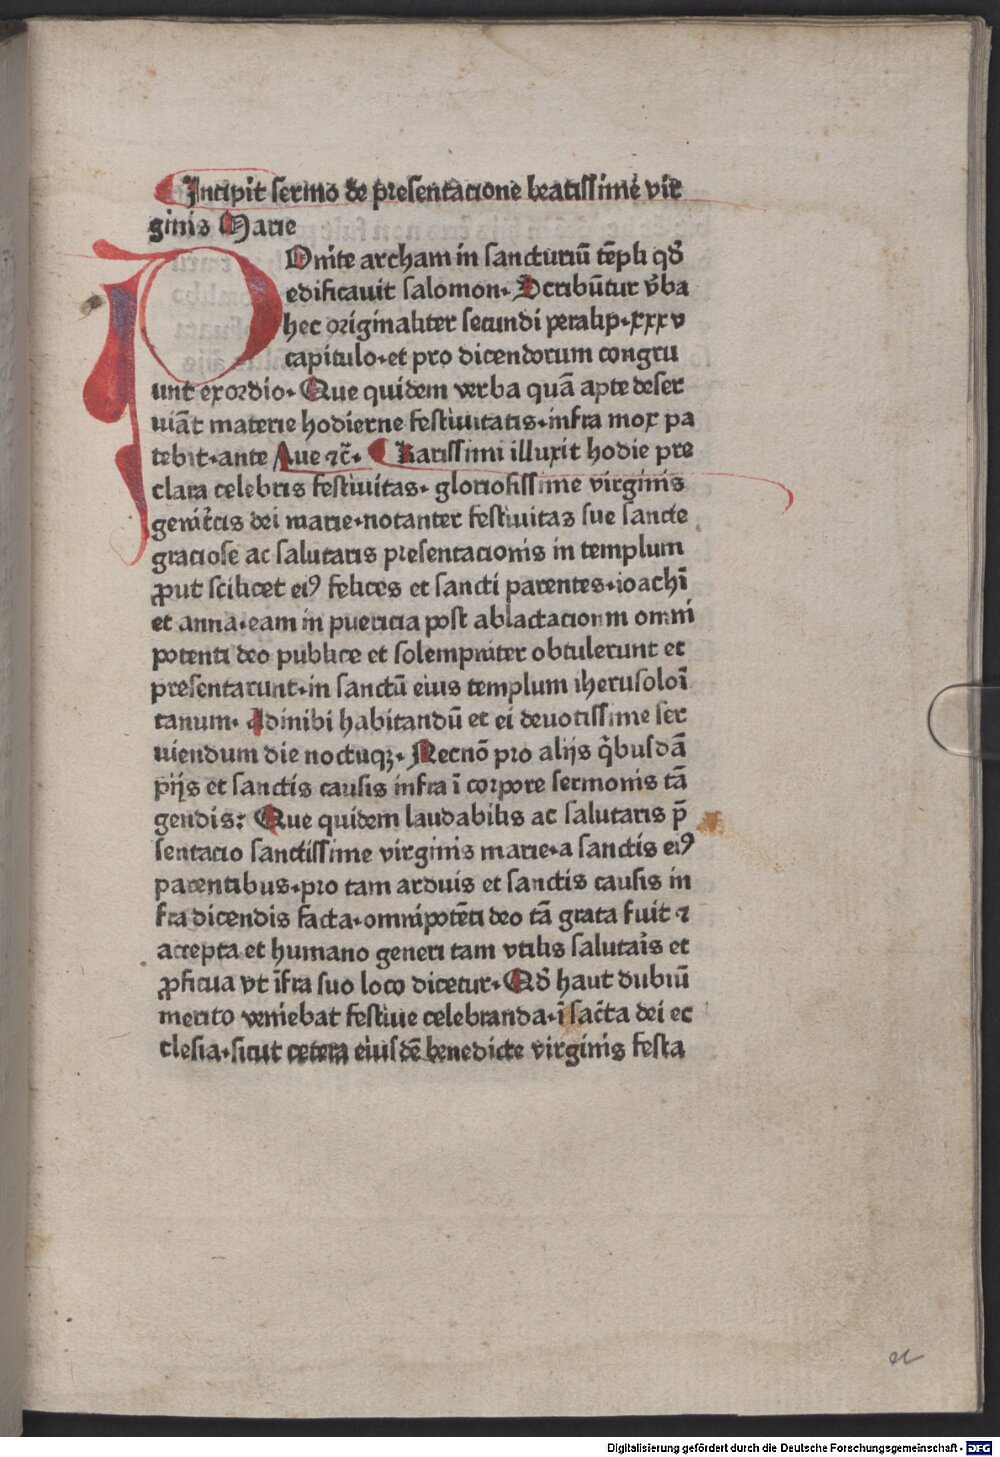 Incipit sermo de presentacione beatissime vir
ginis Marie
POnite archam in sancturiū tēpli qđ
edificauit salomon. Scribūtur v̄ba
hec originaliter secundi peralip.xxxv
capitulo.et pro dicendorum congru
unt exordio. Que quidem verba quā apte deser
uiāt materie hodierne festiuitatis.infra mox pa
tebit.ante Aue ⁊c̄. Karissimi illuxit hodie pre
clara celebris festiuitas. gloriosissime virginis
genit̄cis dei marie.notanter festiuitas sue sancte
graciose ac salutaris presentacionis in templum
ꝓut scilicet eiꝰ felices et sancti parentes.ioachī
et anna.eam in puericia post ablactacionem omni
potenti deo publice et solempniter obtulerunt et
presentarunt.in sanctū eius templum iherusoloī
tanum. Adinibi habitandū et ei deuotissime ser
uiendum die noctuqꝫ. Necnō pro alijs q̄busdā
pijs et sanctis causis infra ī corpore sermonis tā
gendis: Que quidem laudabilis ac salutaris p̄
sentacio sanctissime virginis marie.a sanctis eiꝰ
parentibus.pro tam arduis et sanctis causis in
fra dicendis facta.omnipotēti deo tā grata fuit ⁊
accepta et humano generi tam vtilis salutar̄s et
ꝓficua vt īfra suo loco dicetur. Qđ haut dubiū
merito veniebat festiue celebranda.ī sac̄ta dei ec
clesia.sicut cetera eiusdē benedicte virginis festa
Digitalisierung gefördert durch die Deutsche Forschungsgemeinschaft - DFG